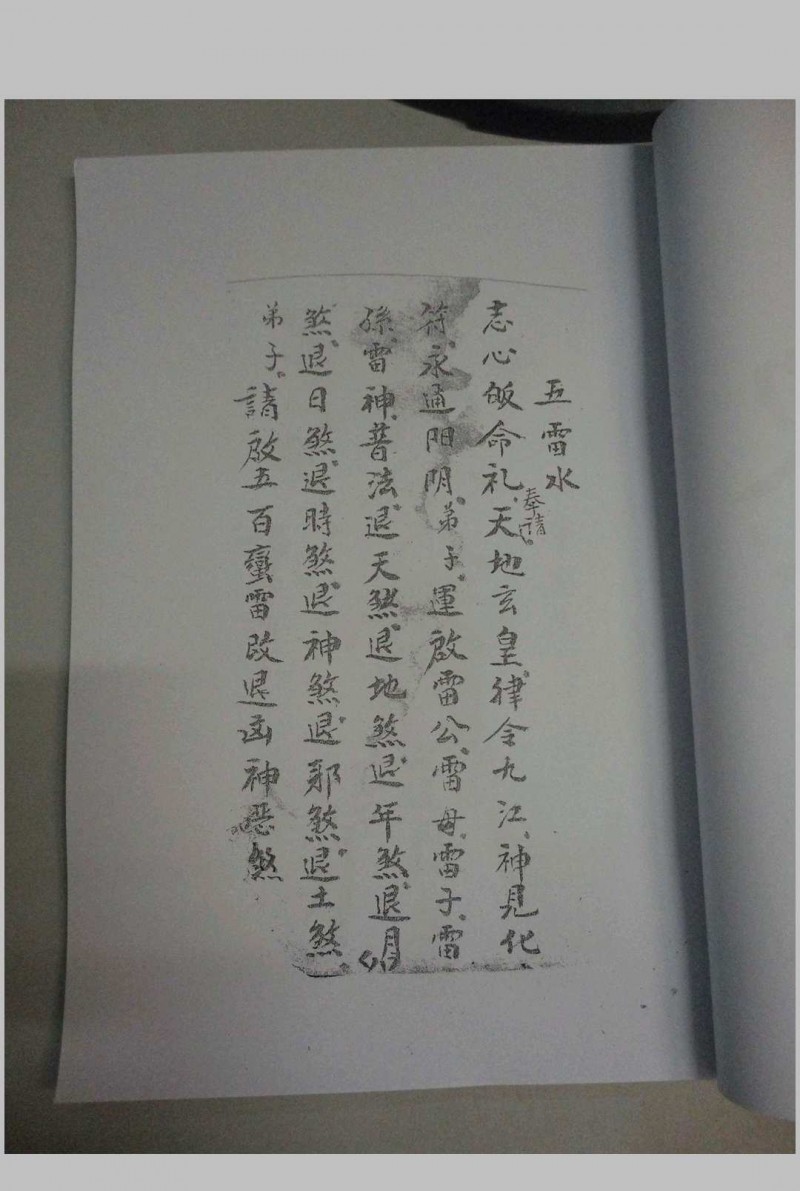 五雷水
志心皈命礼奉請天地玄皇律令九江神見化
符永通阳明弟子運啟雷公雷母雷子雷
孫雷神普法退天煞退地煞退年煞退月
煞退日煞退時煞退神煞退邪煞退土煞
弟子請啟五百蠻雷改退凶神恶煞